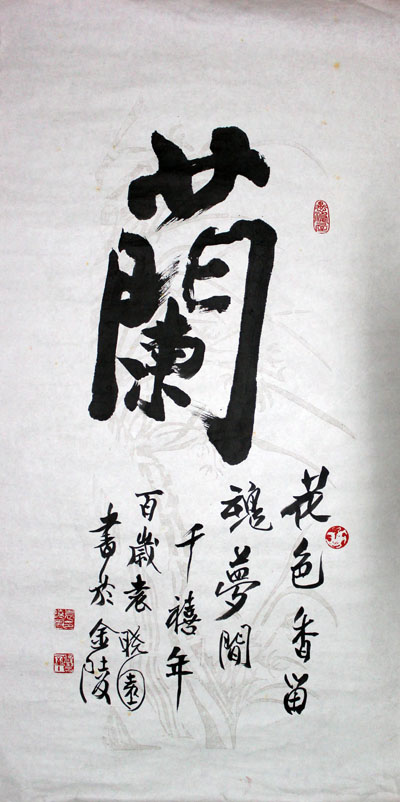 蘭
花色香留
魂夢間
千禧年
百歲袁晓園
書於金陵